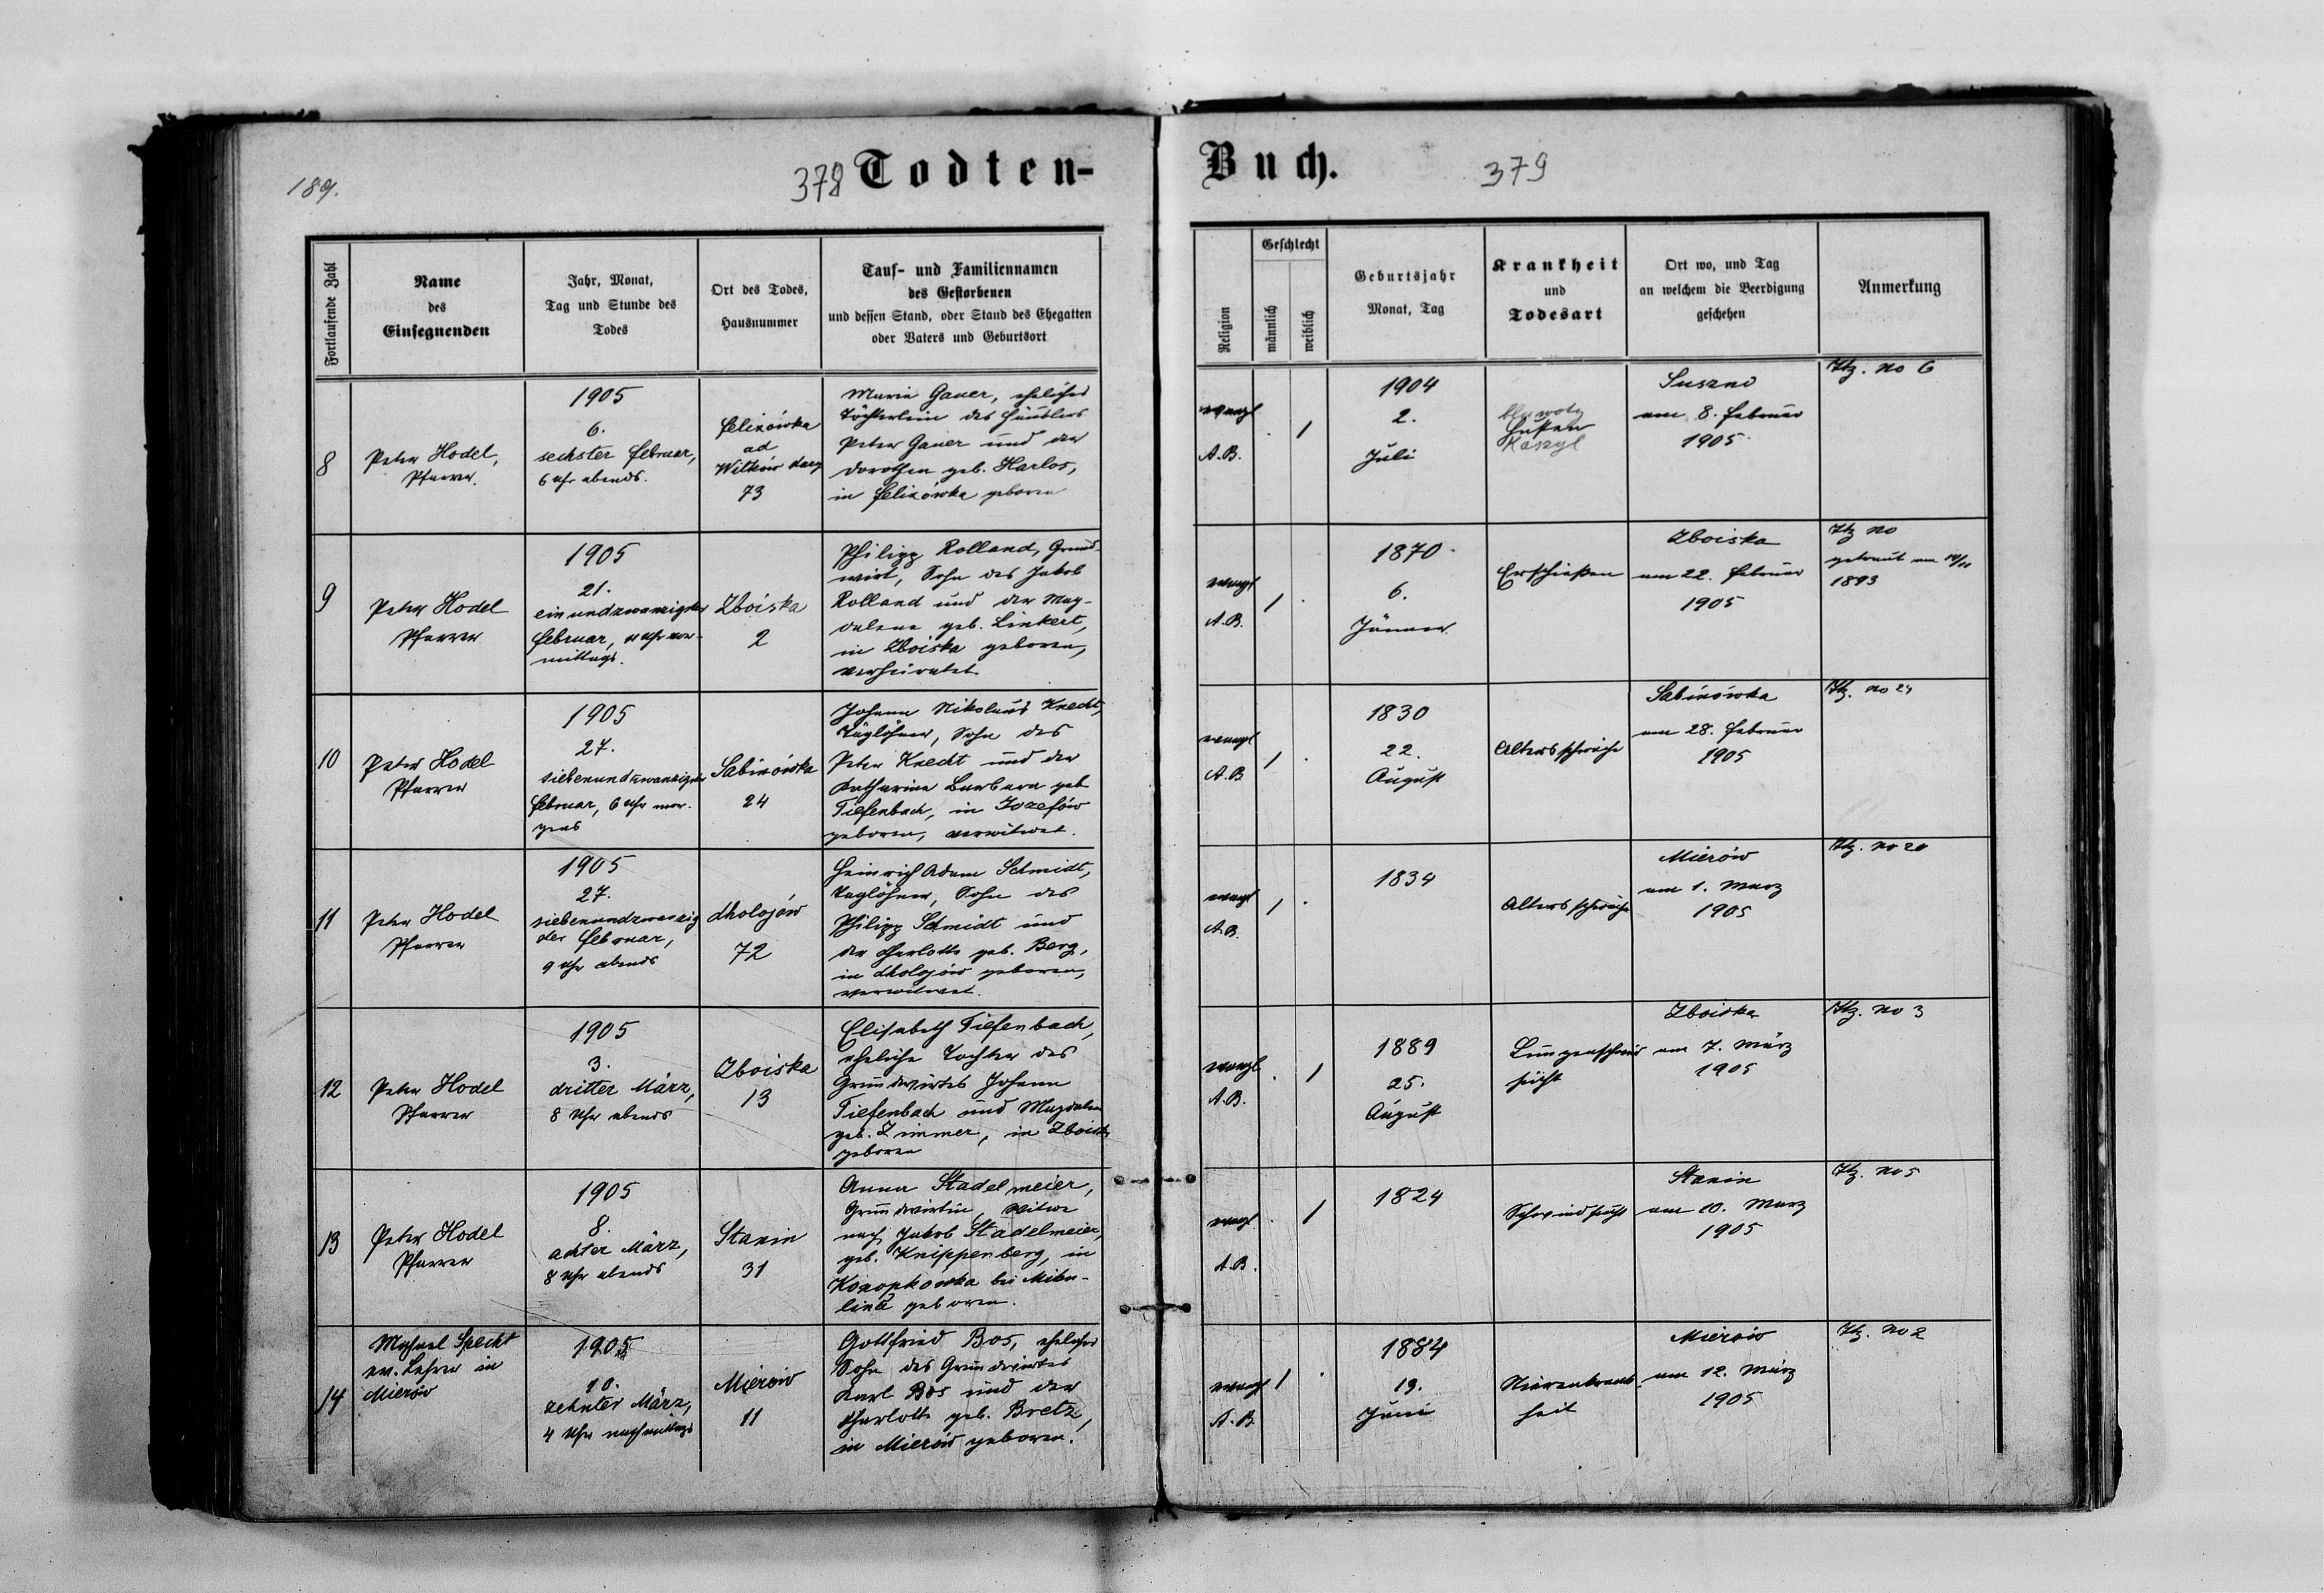 189.
378 Todten-
Fortlaufende Zahl
Name
des
Einsegnenden
Jahr, Monat,
Tag und Stunde des
Todes
Ort des Todes,
Hausnummer
Tauf- und Familiennamen
des Gestorbenen
und dessen Stand, oder Stand des Ehegatten
oder Vaters und Geburtsort
8
Peter Hodel,
Pfarrer.
1905
6.
sechster Februar,
6 Uhr abends.
Felixówka
ad
Witków
73
Maria Gauer, eheliches
Töchterlein des Häuslers
Peter Gauer und der
Dorothea geb. Harlos,
in Felixówka geboren
9
Peter Hodel
Pfarrer
1905
21.
einundzwanzigster
Februar, Uhr vor-
mittags.
Zboiska
2
Philipp Rolland, Grund-
wirt, Sohn des Jakob
Rolland und der Mag-
dalena geb. Linkert,
in Zboiska geboren,
verheiratet.
10
Peter Hodel
Pfarrer
1905
27.
siebenundzwanzigster
Februar, 6 Uhr mor-
gens
Sabinówka
24
Johann Nikolaus Knecht,
Taglöhner, Sohn des
Peter Knecht und der
Katharina Barbara geb
Tiefenbach, in Jozefów
geboren, verwitwet.
11
Peter Hodel
Pfarrer
1905
27.
siebenundzwanzig
ster Februar,
9 Uhr abends
Chołojów
72
Heinrich Adam Schmidt,
Taglöhner, Sohn des
Philipp Schmidt und
der Charlotte geb. Berg,
in Chołojów geboren,
verwitwet.
12
Peter Hodel
Pfarrer
1905
3.
dritter März,
8 Uhr abends
Zboiska
13
Elisabeth Tiefenbach,
eheliche Tochter des
Grundwirtes Johann
Tiefenbach und Magdalena
geb. Zimmer, in Zboiska
geboren
13
Peter Hodel
Pfarrer
1905
8.
achter März,
8 Uhr abends
Stanin
31
Anna Stadelmeier,
Grundwirtin, Witwe
nach Jakob Stadelmeier,
geb. Knippenberg, in
Konopkowka bei Miku-
lince geboren.
14
Michael Specht
ev. Lehrer in
Mierów
1905
10.
zehnter März,
4 Uhr nachmittags
Mierów
11
Gottfried Bos, ehelicher
Sohn des Grundwirtes
Karl Bos und der
Charlotte geb. Bretz,
in Mierów geboren.
Buch. 379
Religion
Geschlecht
männlich
weiblich
Geburtsjahr
Monat, Tag
Krankheit
und
Todesart
Ort wo, und Tag
an welchem die Beerdigung
geschehen
Anmerkung
evangl
A.B.
. 1
1904
2.
Juli
Husten
Kaszyl
Suszno
am 8. Februar
1905.
Itz. No 6
evangl
A.B.
1 .
1870.
6.
Jänner
Erschießen
Zboiska
am 22. Februar
1905
Itz No
getraut am
1893
evangl
A.B.
1 .
1830
22.
August
Altersschwäche
Sabinówka
am 28. Februar
1905
Itz. No 24
evangl
A.B.
1 .
1834
Altersschwäche
Mierów
am 1. März
1905
Itz. No 20
evangl
A.B.
. 1
1889
25.
August
Lungenschwind
sucht
Zboiska
am 7. März
1905
Itz. No 3
evangl
A.B.
. 1
1824
Schwindsucht
Stanin
am 10. März
1905
Itz. No 5
evangl
A.B.
1 .
1884
19.
Juni
Nierenkrank-
heit
Mierów
am 12. März
1905
Itz. No 2